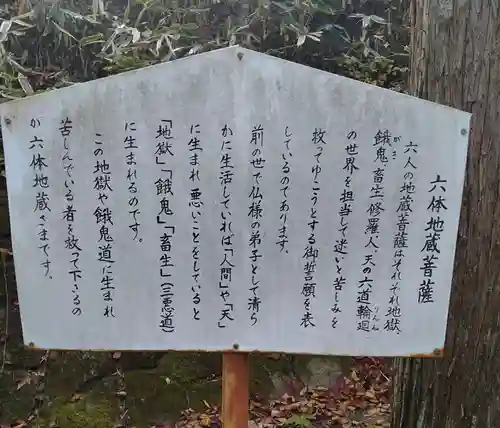 六体地蔵菩薩
六人の地蔵菩薩はそれぞれ地獄、
餓鬼、畜生、修羅、人、天の六道輪廻
がき
りんね
の世界を担当して迷いと苦しみを
救ってゆこうとする御誓願を表
しているのであります。
前の世で仏様の弟子として清ら
かに生活していれば「人間」や「天」
に生まれ悪いことをしていると
「地獄」「餓鬼」「畜生」(三悪道)
に生まれるのです。
この地獄や餓鬼道に生まれ
苦しんでいる者を救って下さるの
が六体地蔵さまです。